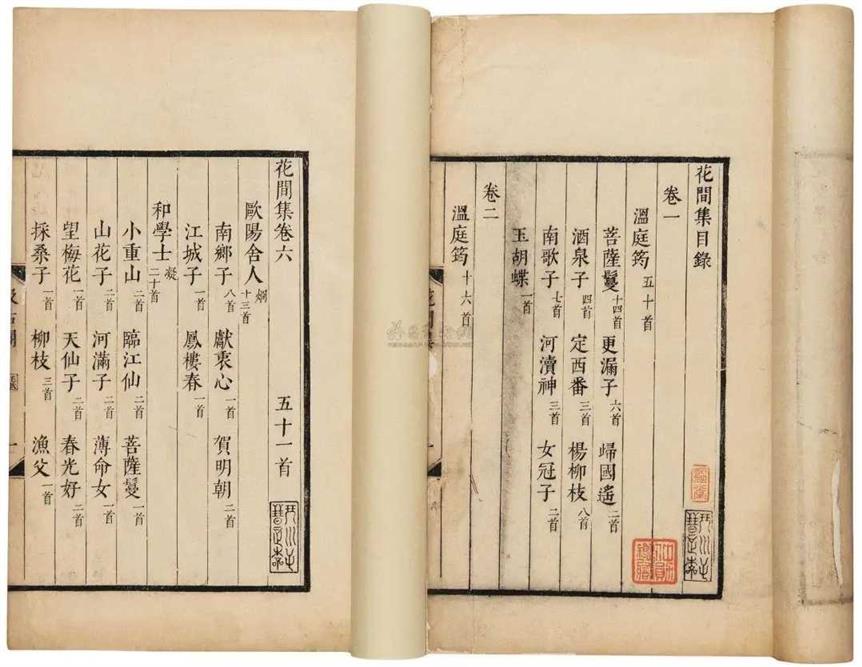 花間集目錄
卷一
溫庭筠 五十首
菩薩鬘 十四首 更漏子 六首 歸國遙 二首
酒泉子 四首 定西番 三首 楊柳枝 八首
南歌子 七首 河瀆神 三首 女冠子 二首
玉胡蝶 一首
卷二
溫庭筠 十六首
花間集卷六 五十一首
歐陽舍人 炯 十三首
南鄉子 八首 獻衷心 一首 賀明朝 二首
江城子 一首 鳳樓春 一首
和學士 凝 二十首
小重山 二首 臨江仙 二首 菩薩鬘 一首
山花子 二首 河滿子 二首 薄命女 一首
望梅花 一首 天仙子 二首 春光好 二首
採桑子 一首 柳枝 三首 漁父 一首